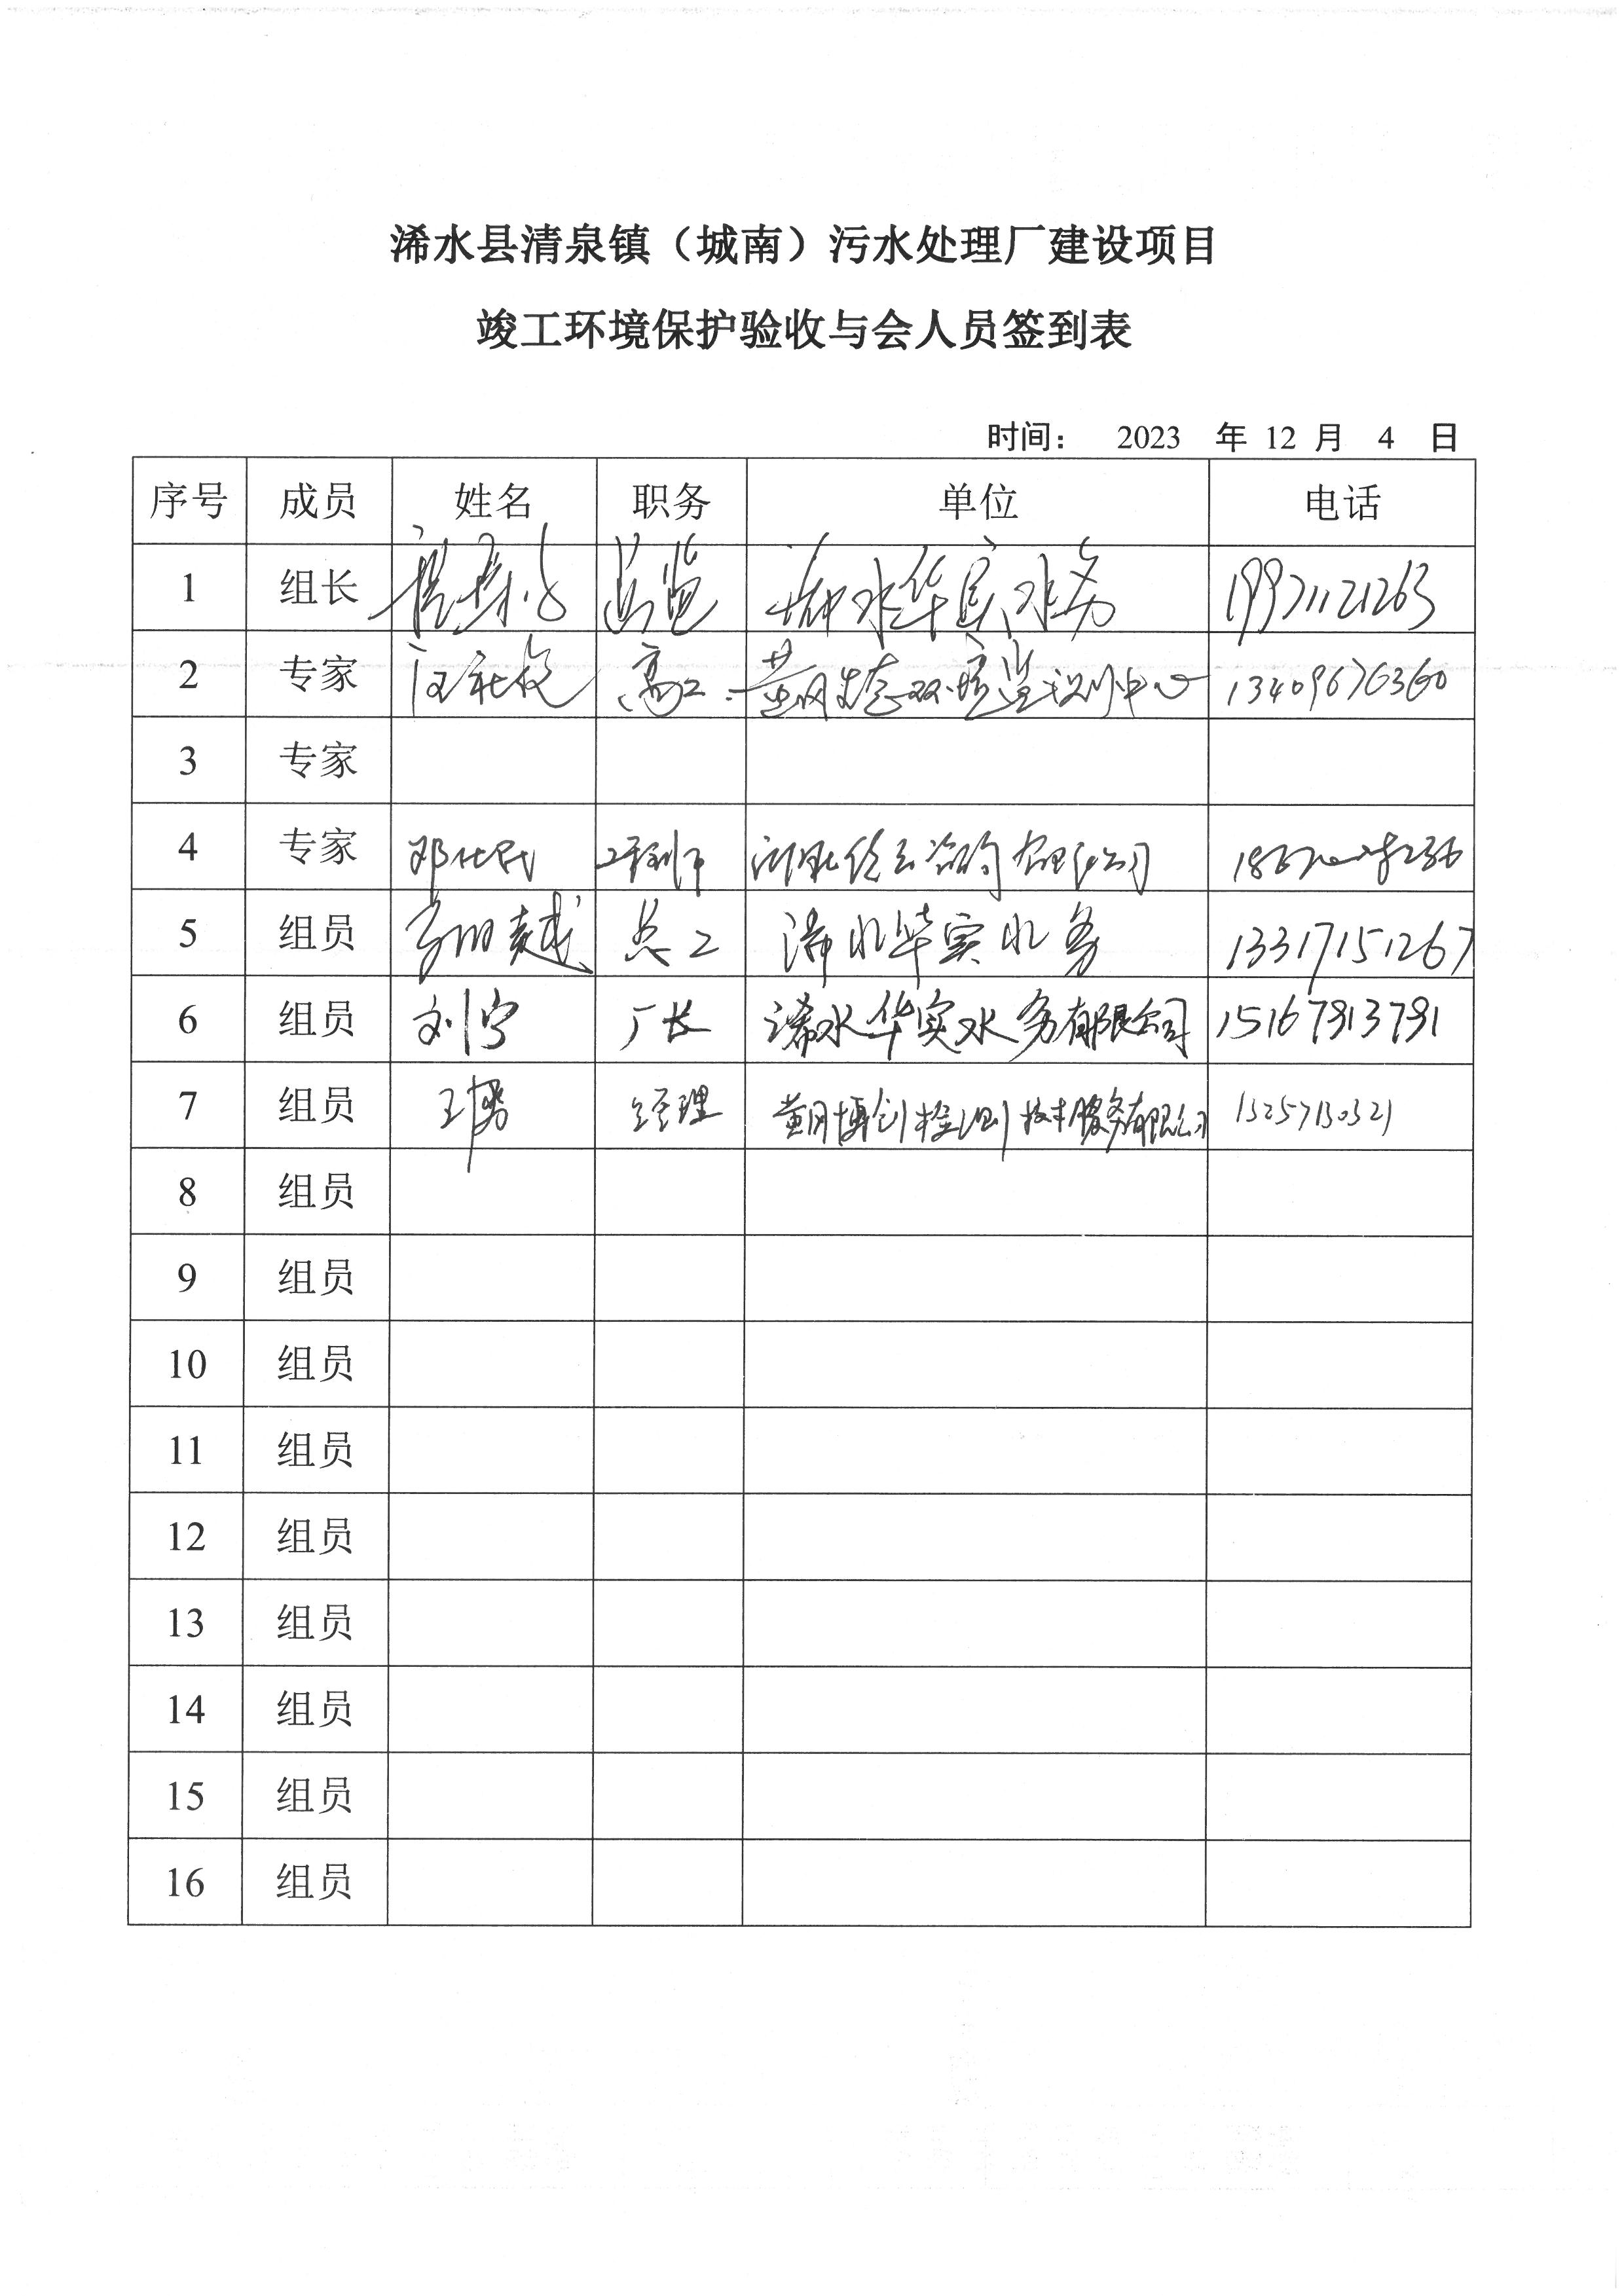 浠水县清泉镇（城南）污水处理厂建设项目
竣工环境保护验收与会人员签到表
时间： 2023 年 12 月 4 日
序号 成员 姓名 职务 单位 电话
1 组长 浠水华实水务 19971121263
2 专家 高工 黄冈生态环境监测中心 13409676360
3 专家
4 专家 工程师
5 组员 总工 浠水华实水务 13317151267
6 组员 刘宁 厂长 浠水华实水务有限公司 15167813781
7 组员 王勇 经理 黄冈博创检测技术服务有限公司 13257130321
8 组员
9 组员
10 组员
11 组员
12 组员
13 组员
14 组员
15 组员
16 组员